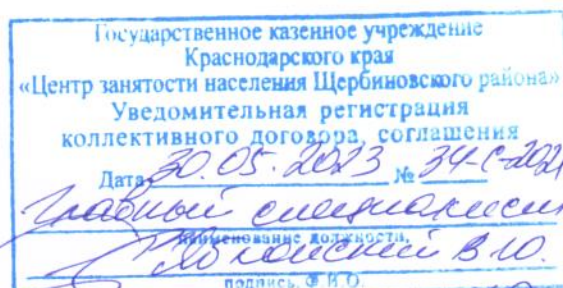 Государственное казенное учреждение
Краснодарского края
«Центр занятости населения Щербиновского района»
Уведомительная регистрация
коллективного договора, соглашения
Дата 30.05.2023 № 34-С-202
Главный специалист
наименование должности,
В.Ю.
подпись, Ф.И.О.